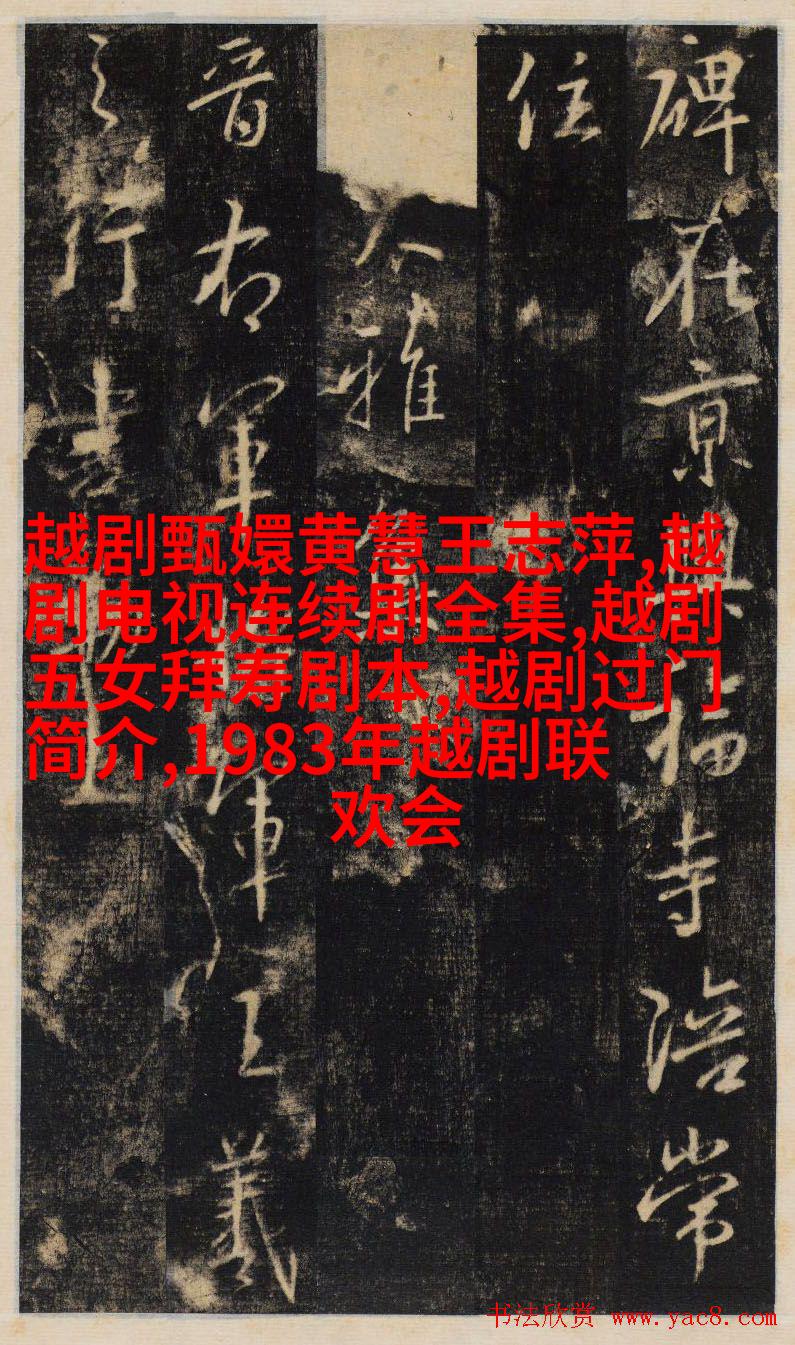 碑在京兴福寺陪常
住
大雅集
晋右军将军王羲
之行书勒上
越剧甄嬛黄慧王志萍,越
剧电视连续剧全集,越剧
五女拜寿剧本,越剧过门
简介,1983年越剧联
欢会
书法欣赏 www.yac8.com